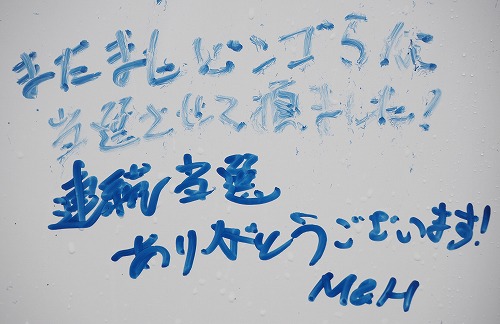 またまたビンゴ5に
当選させて頂ました!
連続当選
ありがとうございます!
M&H